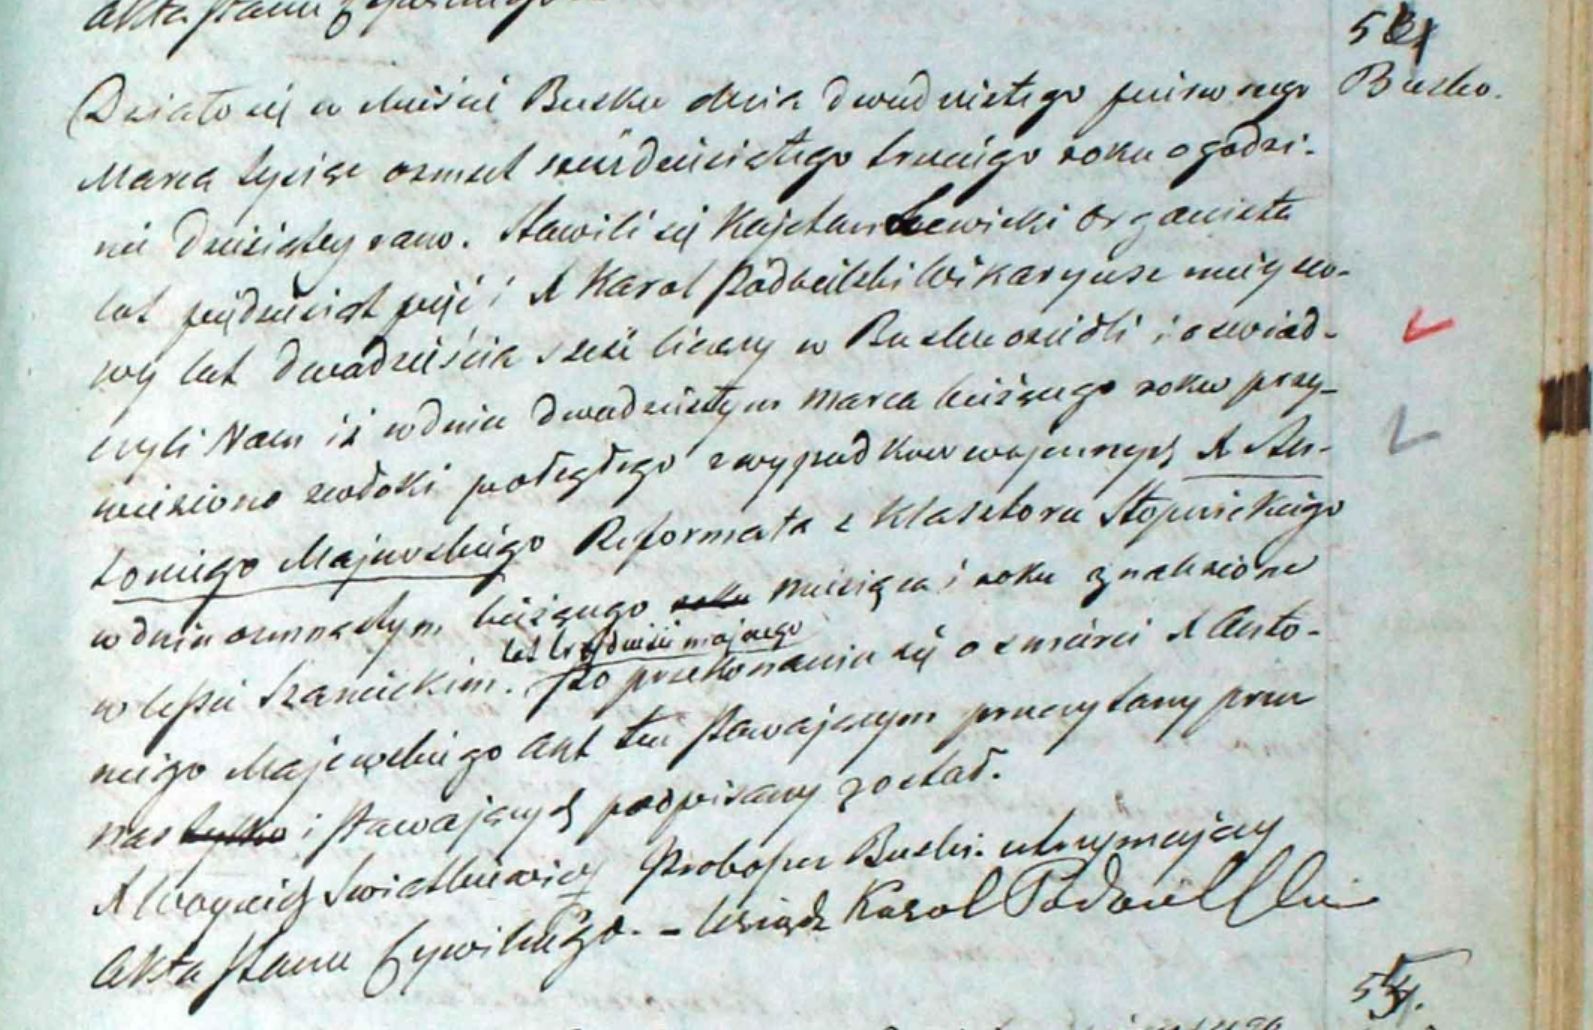 Akta stanu Cywilnego
53
Busko.
Działo się w Mieście Busku dnia dwudziestego pierwszego
Marca tysiąc ośmset sześćdziesiątego trzeciego roku o godzi-
nie dziesiątey rano. Stawili się Kajetan Lewicki Organista
lat pięćdziesiąt pięć i X Karol Podwilski Wikaryusz miejsco-
wy lat dwadzieścia sześć liczący w Busku osiedli i oświad-
czyli Nam iż w dniu dwudziestym marca bieżącego roku przy-
wieziono zwłoki poległego z wypadków wojennych X An-
toniego Majewskiego Reformata z Klasztoru Stopnickiego
w dniu osmnastym bieżącego roku miesiąca i roku znalezione
lat trzydzieści mającego
w lessie Szanieckim. Po przekonaniu się o śmierci X Anto-
niego Majewskiego Akt ten stawającym przeczytany przez
nas tylko i stawających podpisany został.
X Woyciech Swiatkiewicz Proboszcz Buski utrzymujący
Akta stanu Cywilnego. – Ksiądz Karol Podwilski
54.